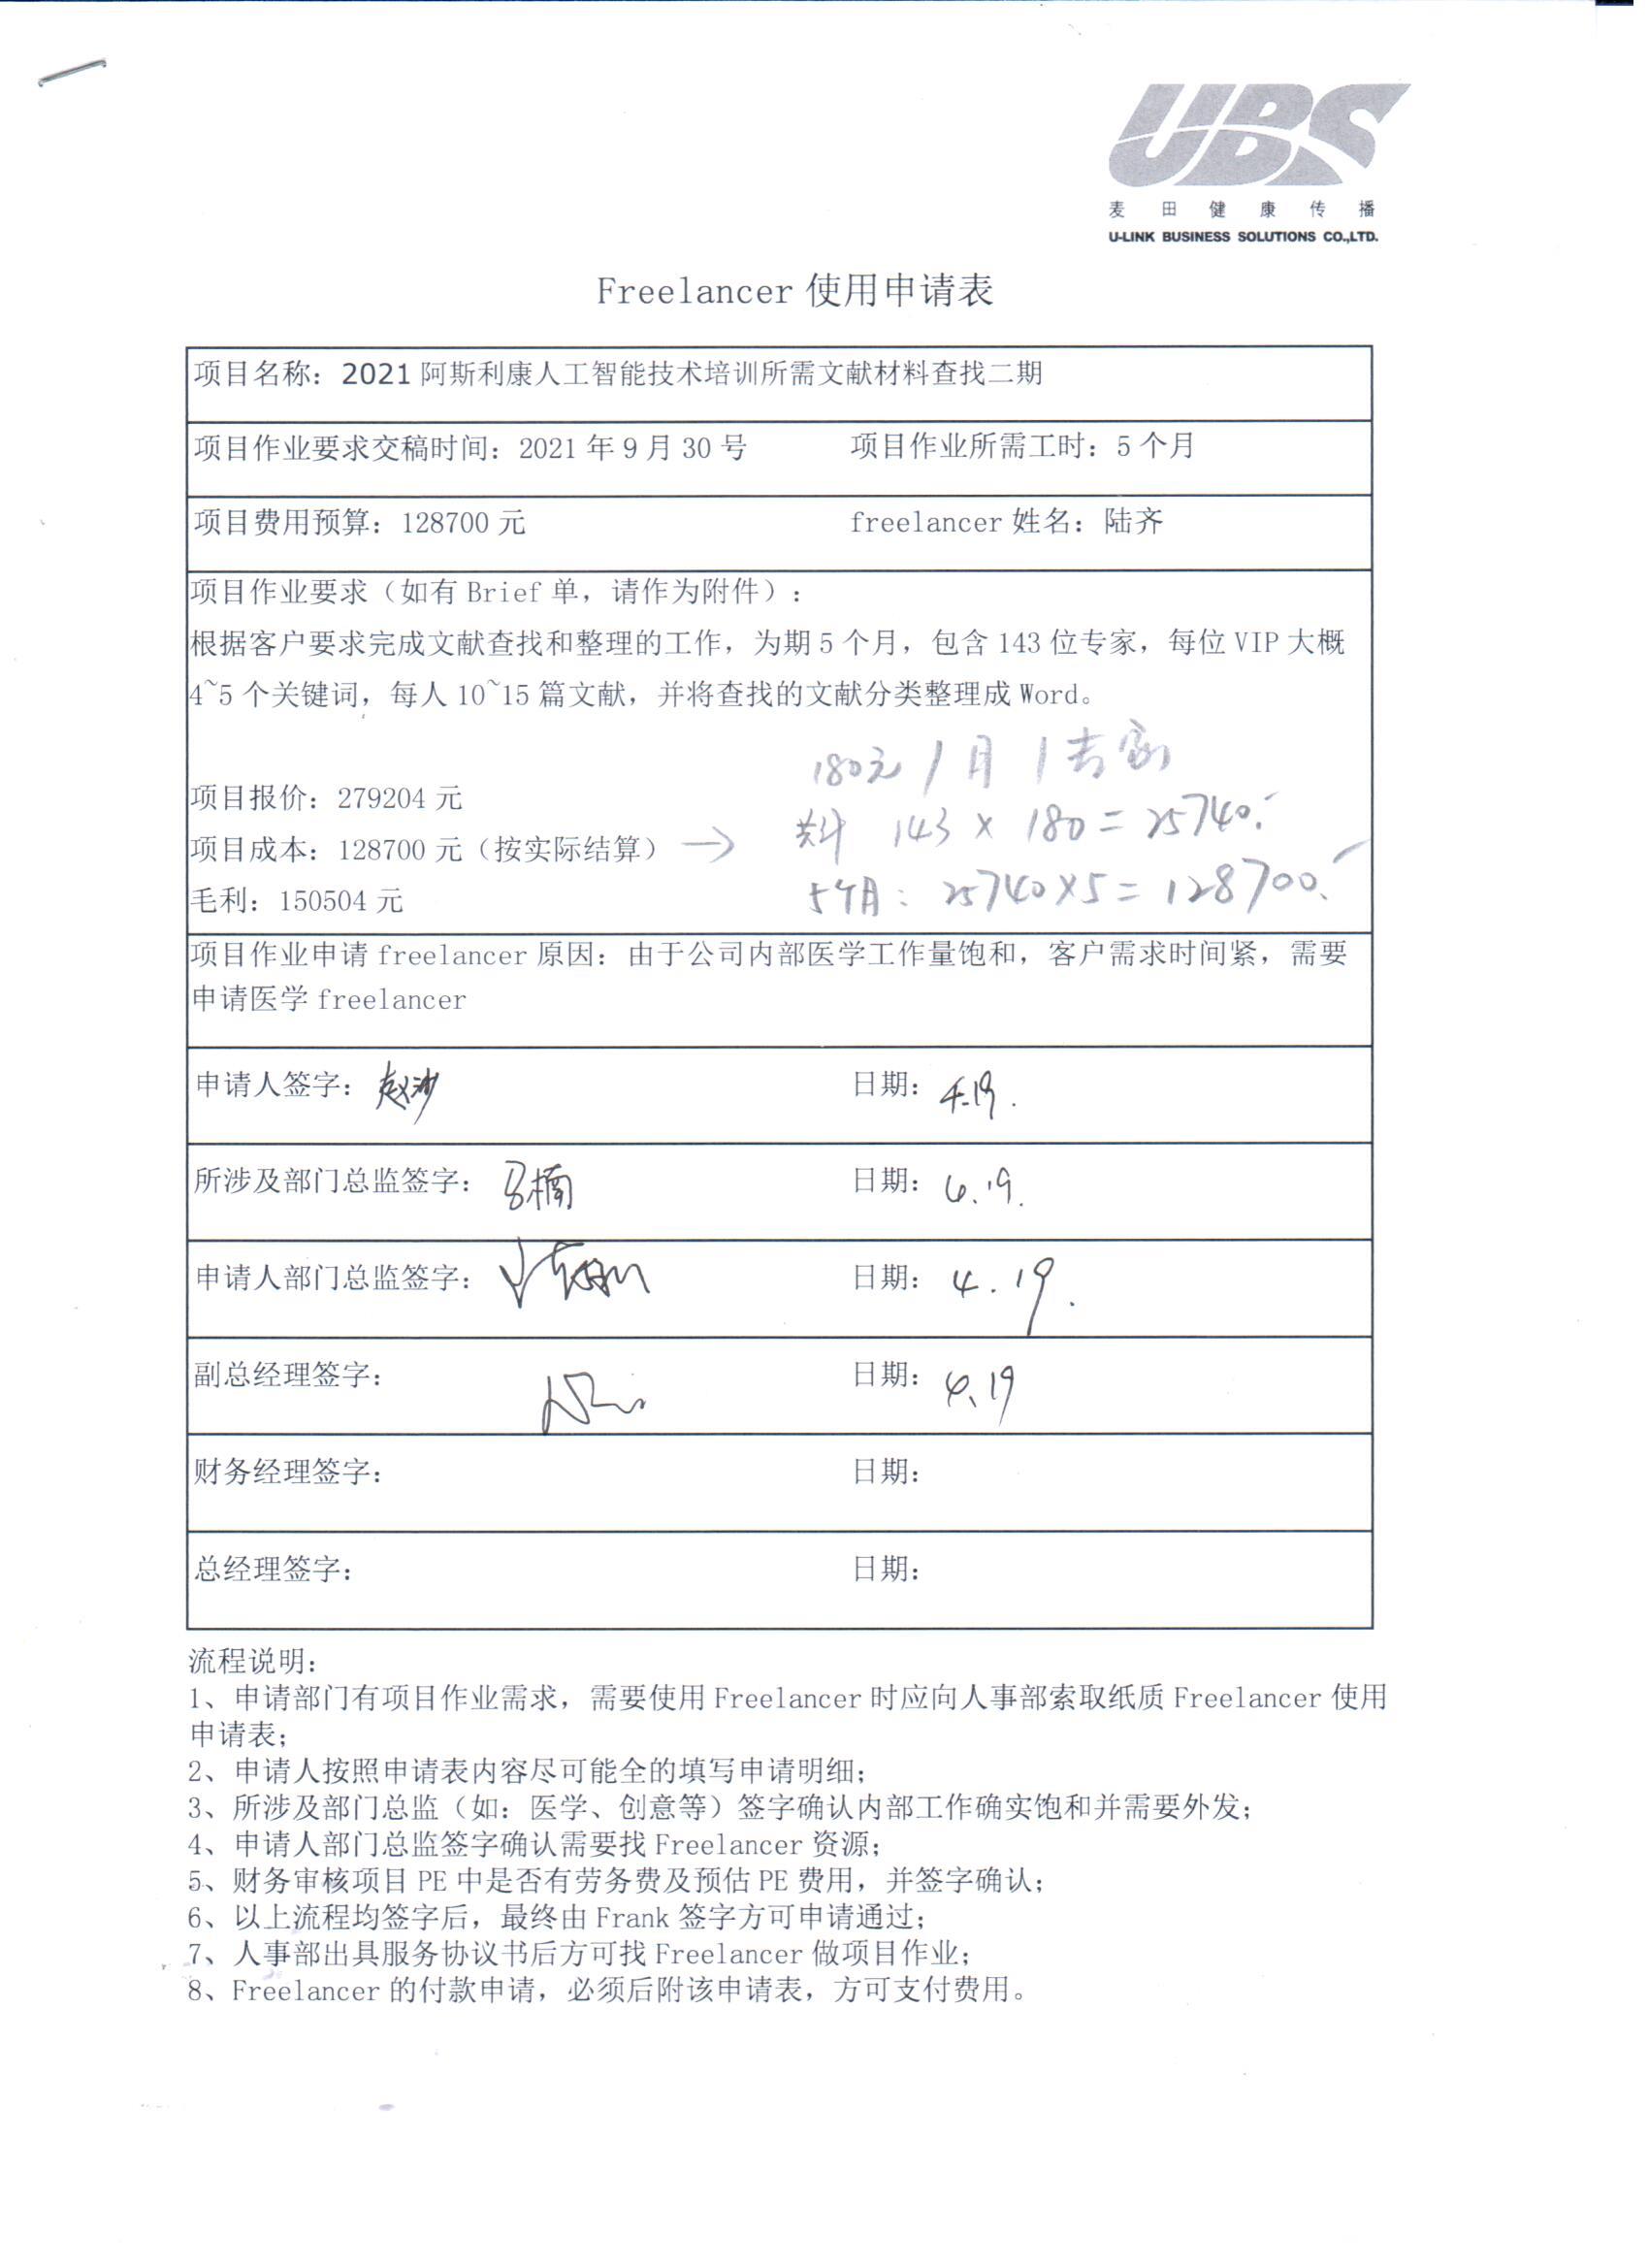 UBS
麦田健康传播
U-LINK BUSINESS SOLUTIONS CO.,LTD.
Freelancer 使用申请表
项目名称：2021 阿斯利康人工智能技术培训所需文献材料查找二期
项目作业要求交稿时间：2021 年 9 月 30 号 项目作业所需工时：5 个月
项目费用预算：128700 元 freelancer 姓名：陆齐
项目作业要求（如有 Brief 单，请作为附件）：
根据客户要求完成文献查找和整理的工作，为期 5 个月，包含 143 位专家，每位 VIP 大概
4~5 个关键词，每人 10~15 篇文献，并将查找的文献分类整理成 Word。
180元/月/专家
项目报价：279204 元
共计 143 × 180 = 25740.
项目成本：128700 元（按实际结算） →
5个月：25740×5 = 128700.
毛利：150504 元
项目作业申请 freelancer 原因：由于公司内部医学工作量饱和，客户需求时间紧，需要
申请医学 freelancer
申请人签字：赵沙 日期：4.19.
所涉及部门总监签字： 日期：4.19.
申请人部门总监签字： 日期：4.19.
副总经理签字： 日期：4.19
财务经理签字： 日期：
总经理签字： 日期：
流程说明：
1、申请部门有项目作业需求，需要使用 Freelancer 时应向人事部索取纸质 Freelancer 使用
申请表；
2、申请人按照申请表内容尽可能全的填写申请明细；
3、所涉及部门总监（如：医学、创意等）签字确认内部工作确实饱和并需要外发；
4、申请人部门总监签字确认需要找 Freelancer 资源；
5、财务审核项目 PE 中是否有劳务费及预估 PE 费用，并签字确认；
6、以上流程均签字后，最终由 Frank 签字方可申请通过；
7、人事部出具服务协议书后方可找 Freelancer 做项目作业；
8、Freelancer 的付款申请，必须后附该申请表，方可支付费用。